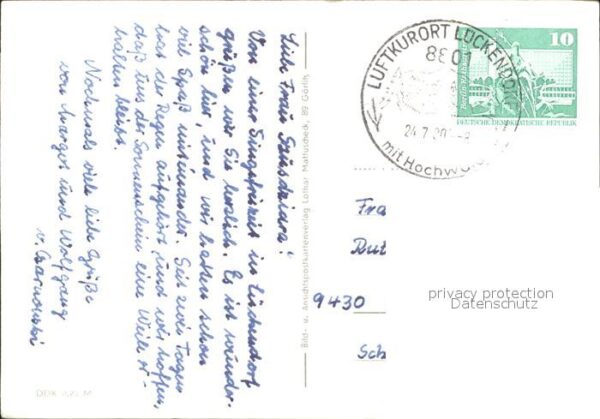 Liebe Frau
Von einer Singfreizeit in Lückendorf
grüßen wir Sie herzlich. Es ist wunder-
schön hier und wir hatten schon
viel Spaß miteinander. Seit zwei Tagen
hat der Regen aufgehört und wir hoffen,
daß uns der Sonnenschein eine Weile er-
halten bleibt.
Nochmals viele liebe Grüße
von Margot und Wolfgang
Bild- u. Ansichtspostkartenverlag Lothar Mattuscheck, 89 Görlitz
LUFTKURORT LÜCKENDORF
8801
24.7.80
mit Hochw
10
DEUTSCHE DEMOKRATISCHE REPUBLIK
Fra
9430
Sch
privacy protection
Datenschutz